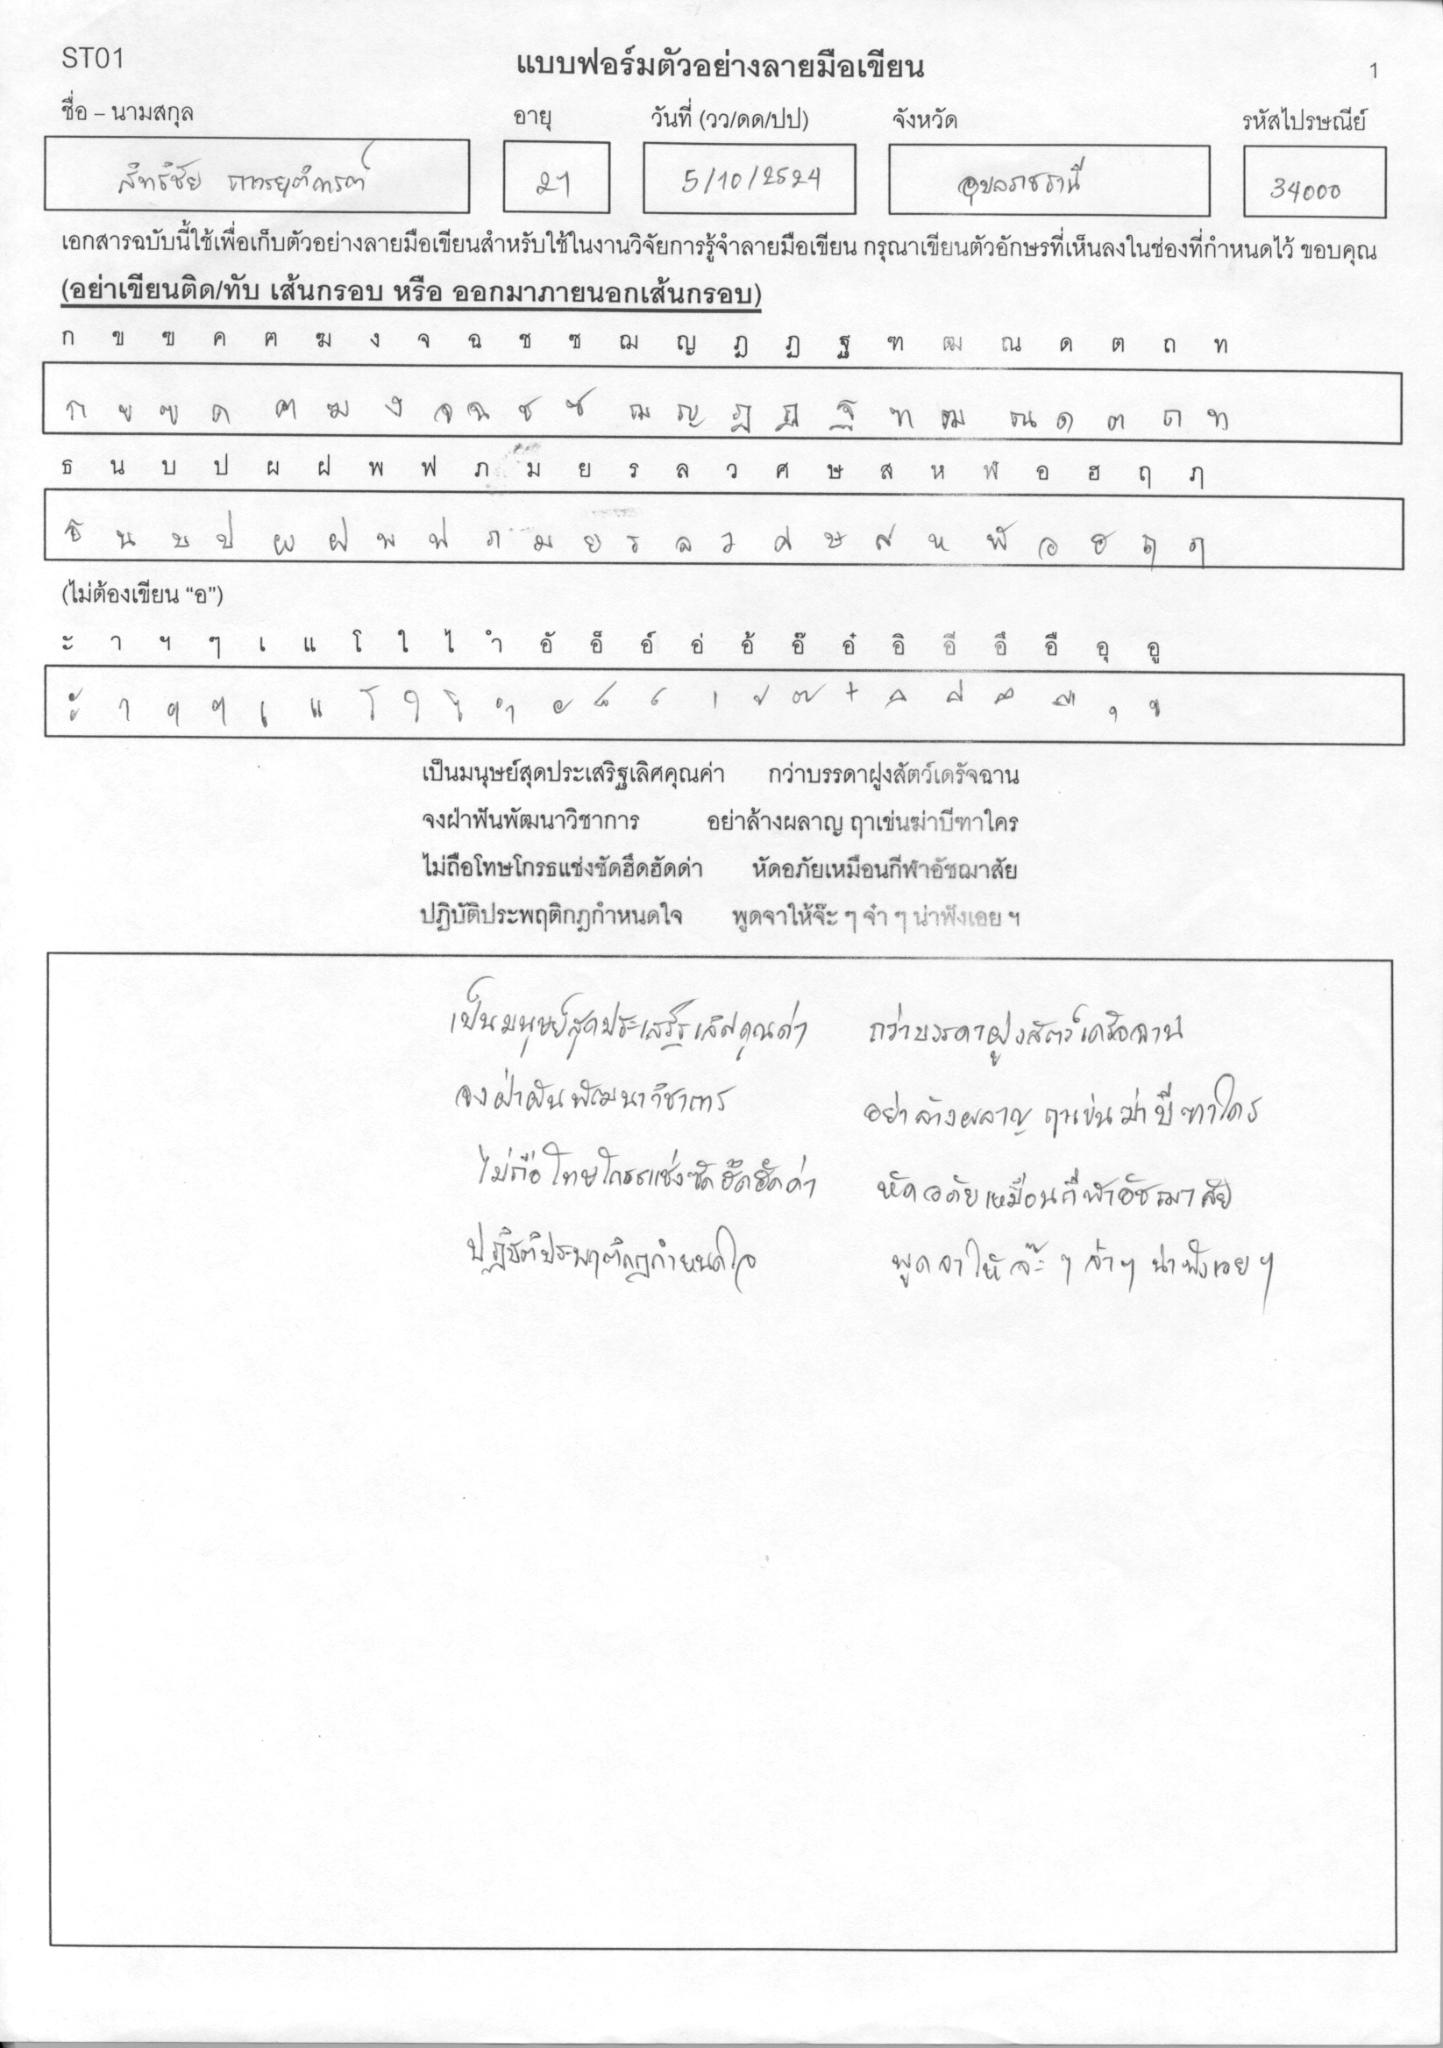 ST01 แบบฟอร์มตัวอย่างลายมือเขียน 1
ชื่อ – นามสกุล อายุ วันที่ (วว/ดด/ปป) จังหวัด รหัสไปรษณีย์
สิทธิชัย 21 5/10/2524 อุบลราชธานี 34000
เอกสารฉบับนี้ใช้เพื่อเก็บตัวอย่างลายมือเขียนสำหรับใช้ในงานวิจัยการรู้จำลายมือเขียน กรุณาเขียนตัวอักษรที่เห็นลงในช่องที่กำหนดไว้ ขอบคุณ
(อย่าเขียนติด/ทับ เส้นกรอบ หรือ ออกมาภายนอกเส้นกรอบ)
ก ข ฃ ค ฅ ฆ ง จ ฉ ช ซ ฌ ญ ฎ ฏ ฐ ฑ ฒ ณ ด ต ถ ท
ก ข ฃ ค ฅ ฆ ง จ ฉ ช ซ ฌ ญ ฎ ฏ ฐ ฑ ฒ ณ ด ต ถ ท
ธ น บ ป ผ ฝ พ ฟ ภ ม ย ร ล ว ศ ษ ส ห ฬ อ ฮ ฤ ฦ
ธ น บ ป ผ ฝ พ ฟ ภ ม ย ร ล ว ศ ษ ส ห ฬ อ ฮ ฤ ฦ
(ไม่ต้องเขียน “อ”)
ะ า ฯ ๆ เ แ โ ใ ไ ำ อั อ็ อ์ อ่ อ้ อ๊ อ๋ อิ อี อึ อื อุ อู
ะ า ฯ ๆ เ แ โ ใ ไ ำ ั ็ ์ ่ ้ ๊ ๋ ิ ี ึ ื ุ ู
เป็นมนุษย์สุดประเสริฐเลิศคุณค่า กว่าบรรดาฝูงสัตว์เดรัจฉาน
จงฝ่าฟันพัฒนาวิชาการ อย่าล้างผลาญ ฤาเข่นฆ่าบีฑาใคร
ไม่ถือโทษโกรธแช่งซัดฮึดฮัดด่า หัดอภัยเหมือนกีฬาอัชฌาสัย
ปฏิบัติประพฤติกฎกำหนดใจ พูดจาให้จ๊ะ ๆ จ๋า ๆ น่าฟังเอย ฯ
เป็นมนุษย์สุดประเสริฐเลิศคุณค่า กว่าบรรดาฝูงสัตว์เดรัจฉาน
จงฝ่าฟันพัฒนาวิชาการ อย่าล้างผลาญ ฤาเข่นฆ่าบีฑาใคร
ไม่ถือโทษโกรธแช่งซัดฮึดฮัดด่า หัดอภัยเหมือนกีฬาอัชฌาสัย
ปฏิบัติประพฤติกฎกำหนดใจ พูดจาให้จ๊ะ ๆ จ๋า ๆ น่าฟังเอย ฯ